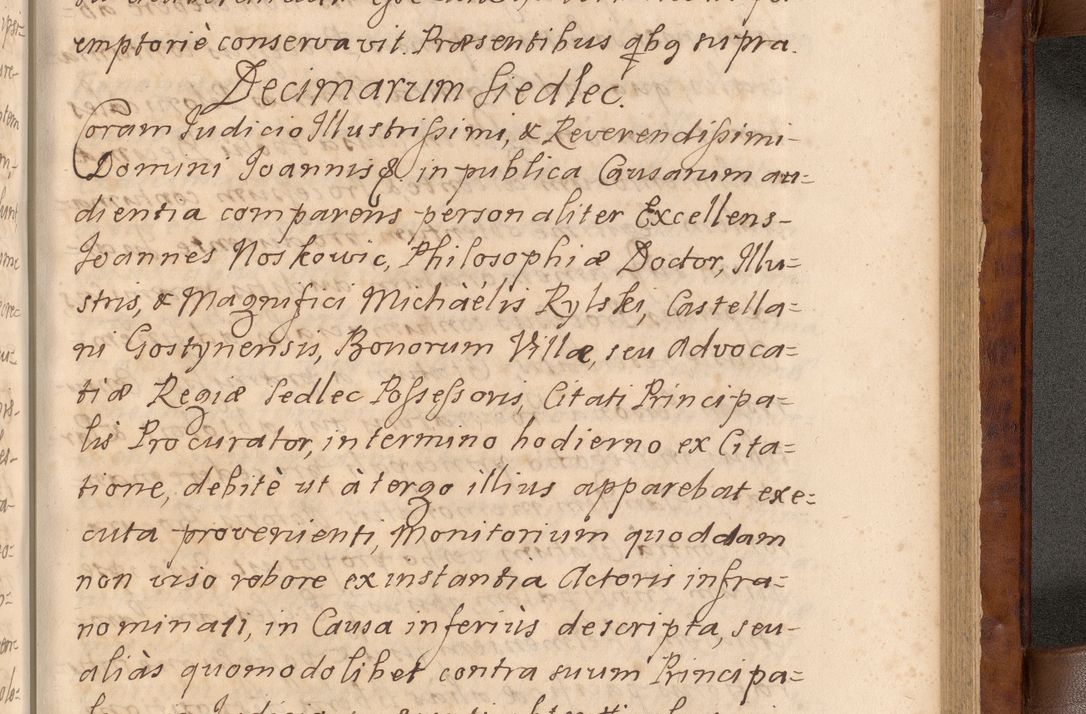 emptoriè conservavit. Præsentibus qbg supra.
Decimarum Siedlec.
Coram Iudicio Illustrissimi, & Reverendissimi
Domini Ioannis & in publica Causarum au=
dientia comparens personaliter Excellens
Joannes Noskowic, Philosophiæ Doctor, Illu=
stris, & Magnifici Michàélis Rylski, Castella=
ni Gostynensis, Bonorum Villæ, seu Advoca=
tiæ Regiæ Sedlec Possessoris, Citati Principa=
lis Procurator, in termino hodierno ex Cita=
tione, debitè ut à tergo illius apparebat exe=
cuta provenienti, Monitorium quoddam
non viso robore ex instantia Actoris infra=
nominati, in Causa inferiùs descripta, seu
aliàs quomodolibet contra suum Principa=